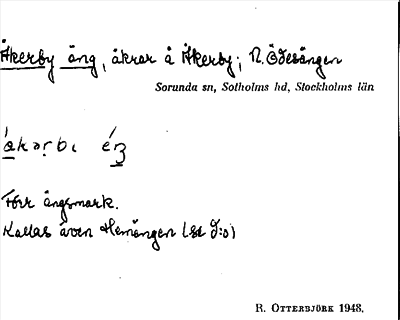 Åkerby äng, åkrar å Åkerby; N. Ödesängen
Sorunda sn, Sotholms hd, Stockholms län
Förr ängsmark.
Kallas även Hemängen (se d:o)
R. OTTERBJÖRK 1948.